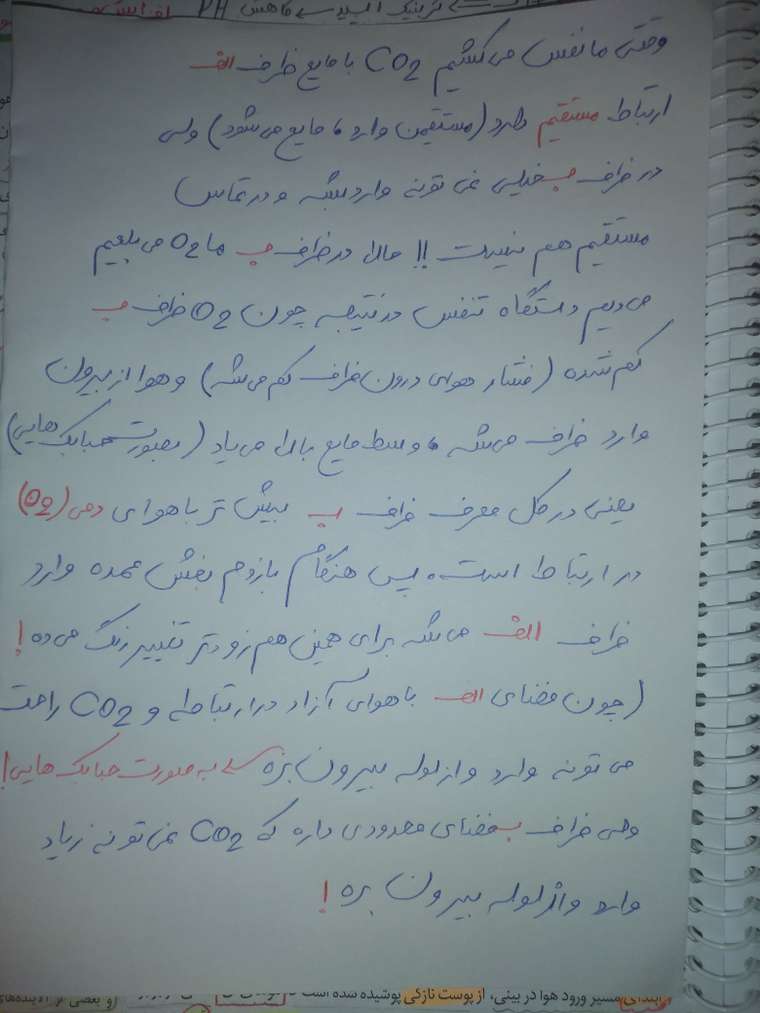 کربنیک اسید ← کاهش PH
وقتی ما نفس می‌کشیم CO2 با مایع ظرف الف
ارتباط مستقیم دارد (مستقیمن وارد مایع می‌شود) ولی
در ظرف ب خیلی نمی تونه وارد بشه و در تماس
مستقیم هم نیست !! حالا در ظرف ب ما O2 می بلعیم
می‌دیم دستگاه تنفس در نتیجه چون O2 ظرف ب
کم شده (فشار هوای درون ظرف کم می‌شه) و هوا از بیرون
وارد ظرف می‌شه و وسط مایع بالا می‌یاد (بصورت حبابک هایی)
یعنی در کل معرف ظرف ب بیش تر با هوای دمی (O2)
در ارتباط است. پس هنگام بازدم بخش عمده وارد
ظرف الف می شه برای همین هم زودتر تغییر رنگ می ده !
(چون فضای الف با هوای آزاد در ارتباطه و CO2 راحت
می تونه وارد و از لوله بیرون بزه ← به صورت حبابک هایی!
ولی ظرف ب فضای محدودی داره که CO2 نمی تونه زیاد
وارد و از لوله بیرون بره !
ابتدای مسیر ورود هوا در بینی، از پوست نازکی پوشیده شده است